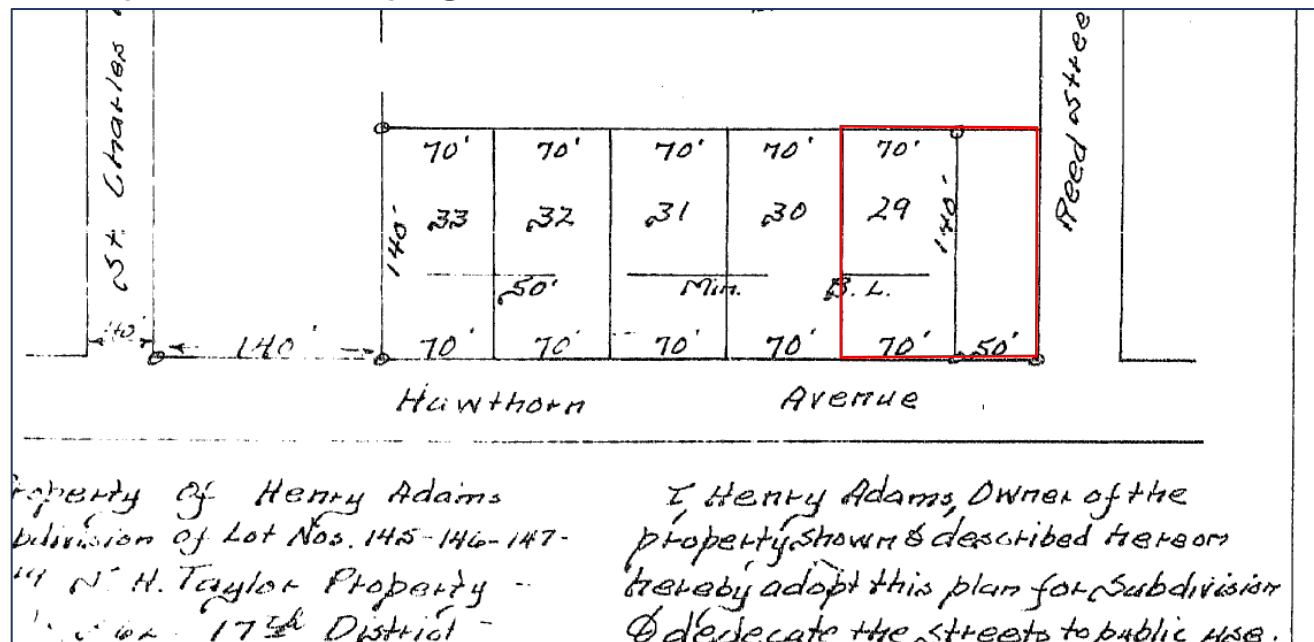 St. Charles
Reed Stree
70' 70' 70' 70' 70'
33 32 31 30 29
140' 140'
50' Min. B. L.
40' 140' 70' 70' 70' 70' 70' 50'
Hawthorn Avenue
roperty Of Henry Adams
bdivision of Lot Nos. 145-146-147-
N. H. Taylor Property -
17th District -
I, Henry Adams, Owner of the
property shown & described hereon
hereby adopt this plan for Subdivision
& dedecate the streets to public use.